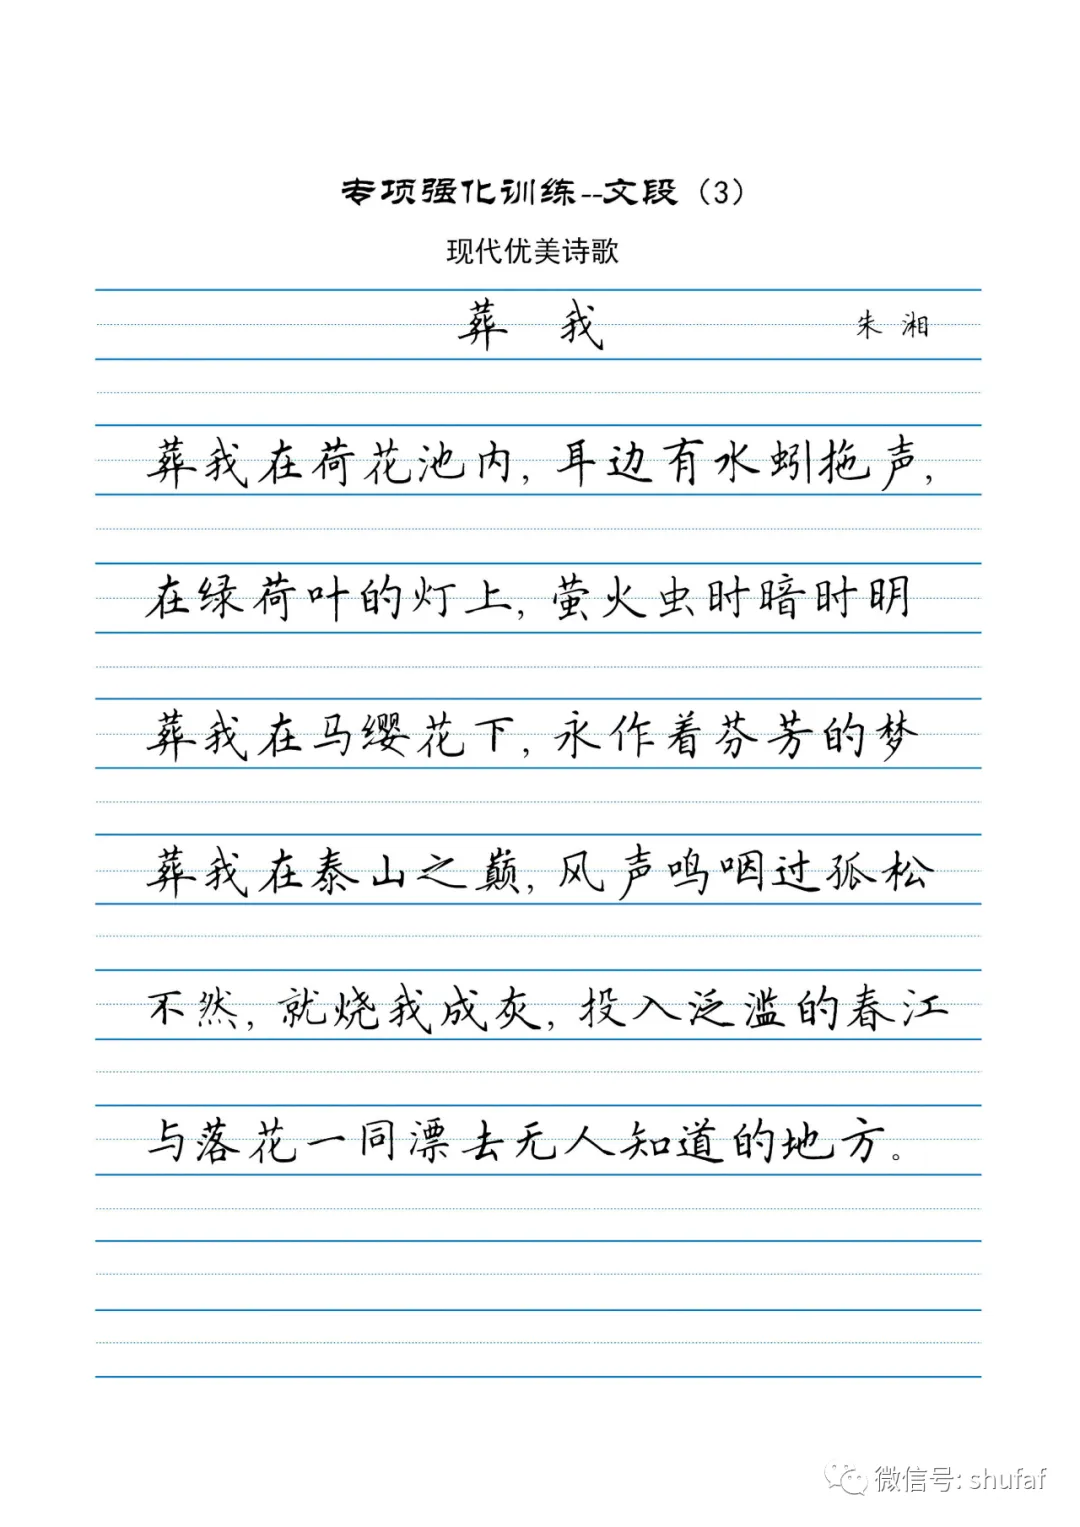 专项强化训练--文段（3）
现代优美诗歌
葬 我 朱 湘
葬我在荷花池内，耳边有水蚓拖声，
在绿荷叶的灯上，萤火虫时暗时明
葬我在马缨花下，永作着芬芳的梦
葬我在泰山之巅，风声鸣咽过孤松
不然，就烧我成灰，投入泛滥的春江
与落花一同漂去无人知道的地方。
微信号: shufaf